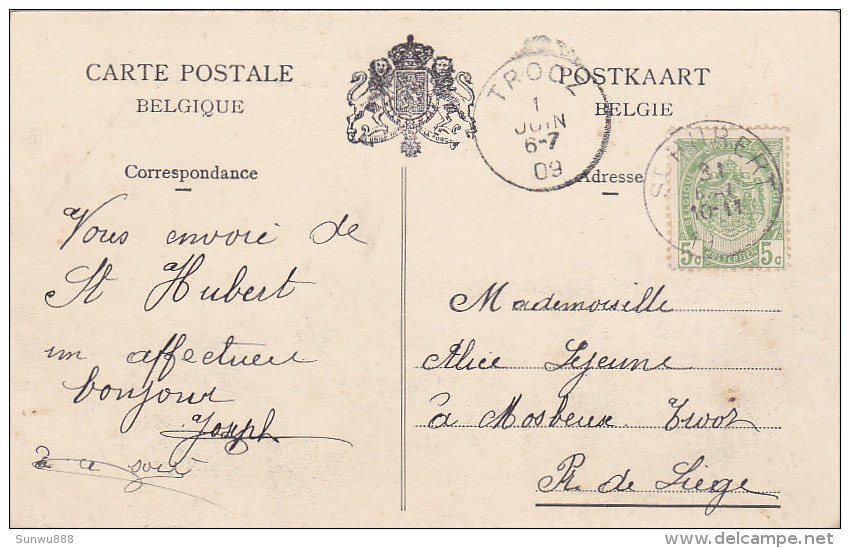 CARTE POSTALE
BELGIQUE
POSTKAART
BELGIE
TROOZ
1
JUIN
6-7
09
Correspondance
Adresse
ST HUBERT
31
10-11
5c 5c
Vous envoie de
St Hubert
un affectueu
bonjour
Joseph
à ce soir
Mademoiselle
Alice Lejeune
à Mosbeux Trooz
Pr. de Liège
Sunwu888
delcampe.net